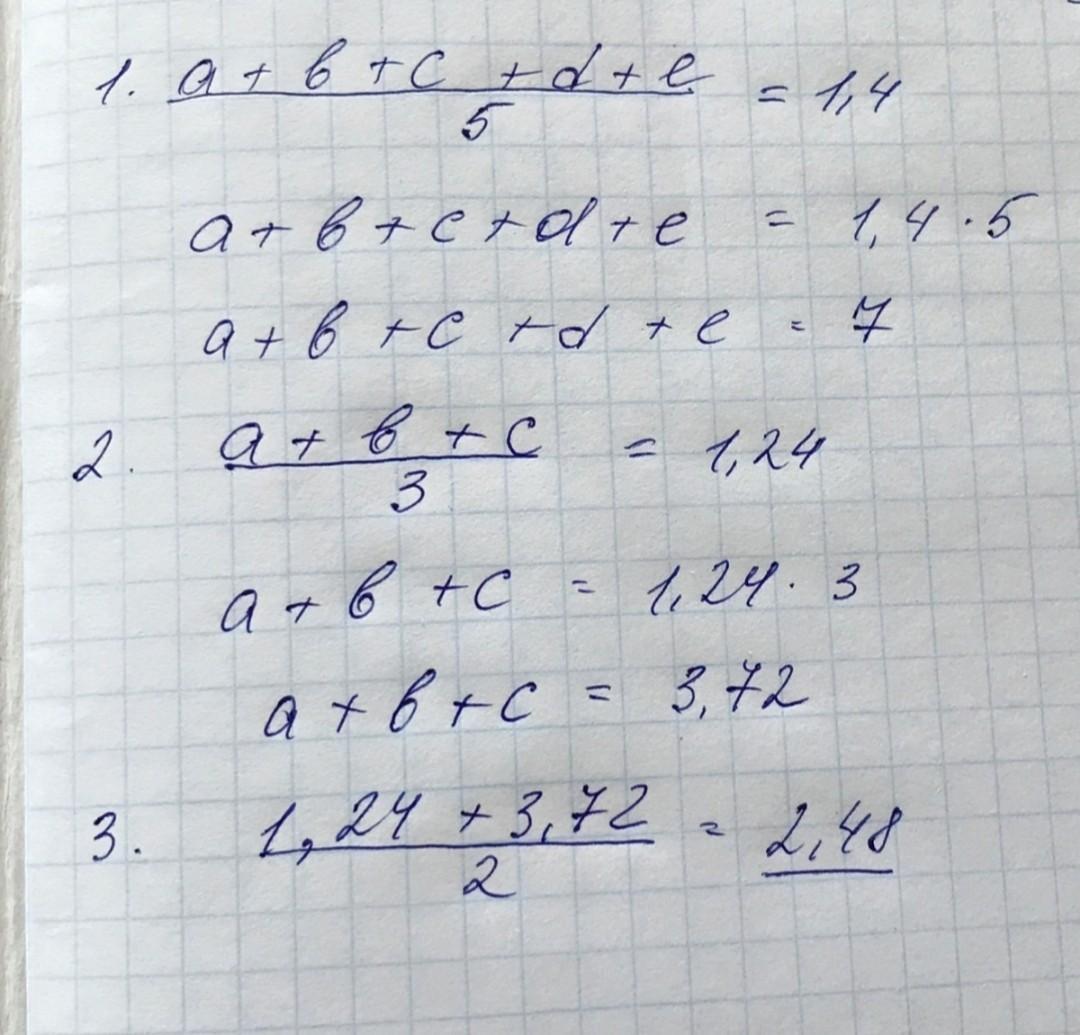 1. a + b + c + d + e / 5 = 1,4
a + b + c + d + e = 1,4 · 5
a + b + c + d + e = 7
2. a + b + c / 3 = 1,24
a + b + c = 1,24 · 3
a + b + c = 3,72
3. 1,24 + 3,72 / 2 = 2,48